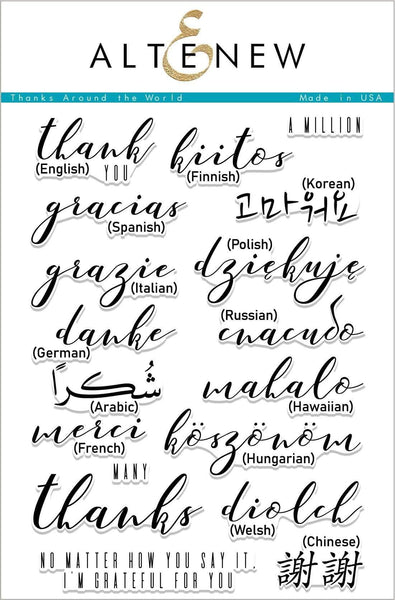 ALTENEW
Thanks Around the World Made in USA
A MILLION
thank kiitos
(English) YOU (Finnish)
(Korean)
gracias 고마워요
(Spanish)
(Polish)
grazie dziękuję
(Italian)
(Russian)
danke спасибо
(German)
شُكراً mahalo
(Arabic) (Hawaiian)
merci köszönöm
(French) (Hungarian)
MANY
thanks diolch
(Welsh)
(Chinese)
NO MATTER HOW YOU SAY IT, 謝謝
I'M GRATEFUL FOR YOU